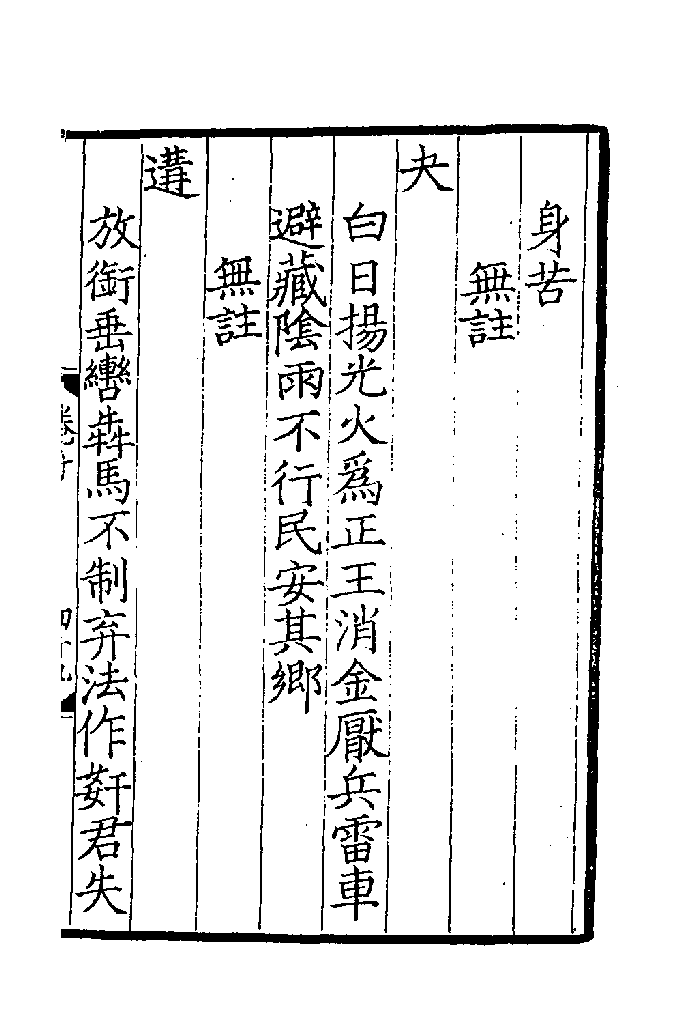 身苦
無註
夬
白日揚光火爲正王消金厭兵雷車
避藏陰雨不行民安其鄉
無註
遘
放銜垂轡犇馬不制弃法作姧君失